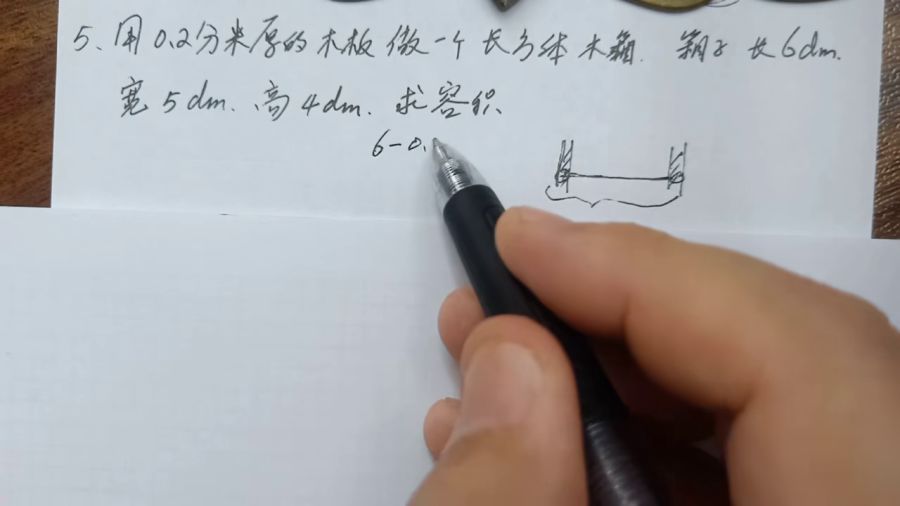 5、用0.2分米厚的木板做一个长方体木箱. 箱子长6dm.
宽5dm.、高4dm. 求容积
6-0.